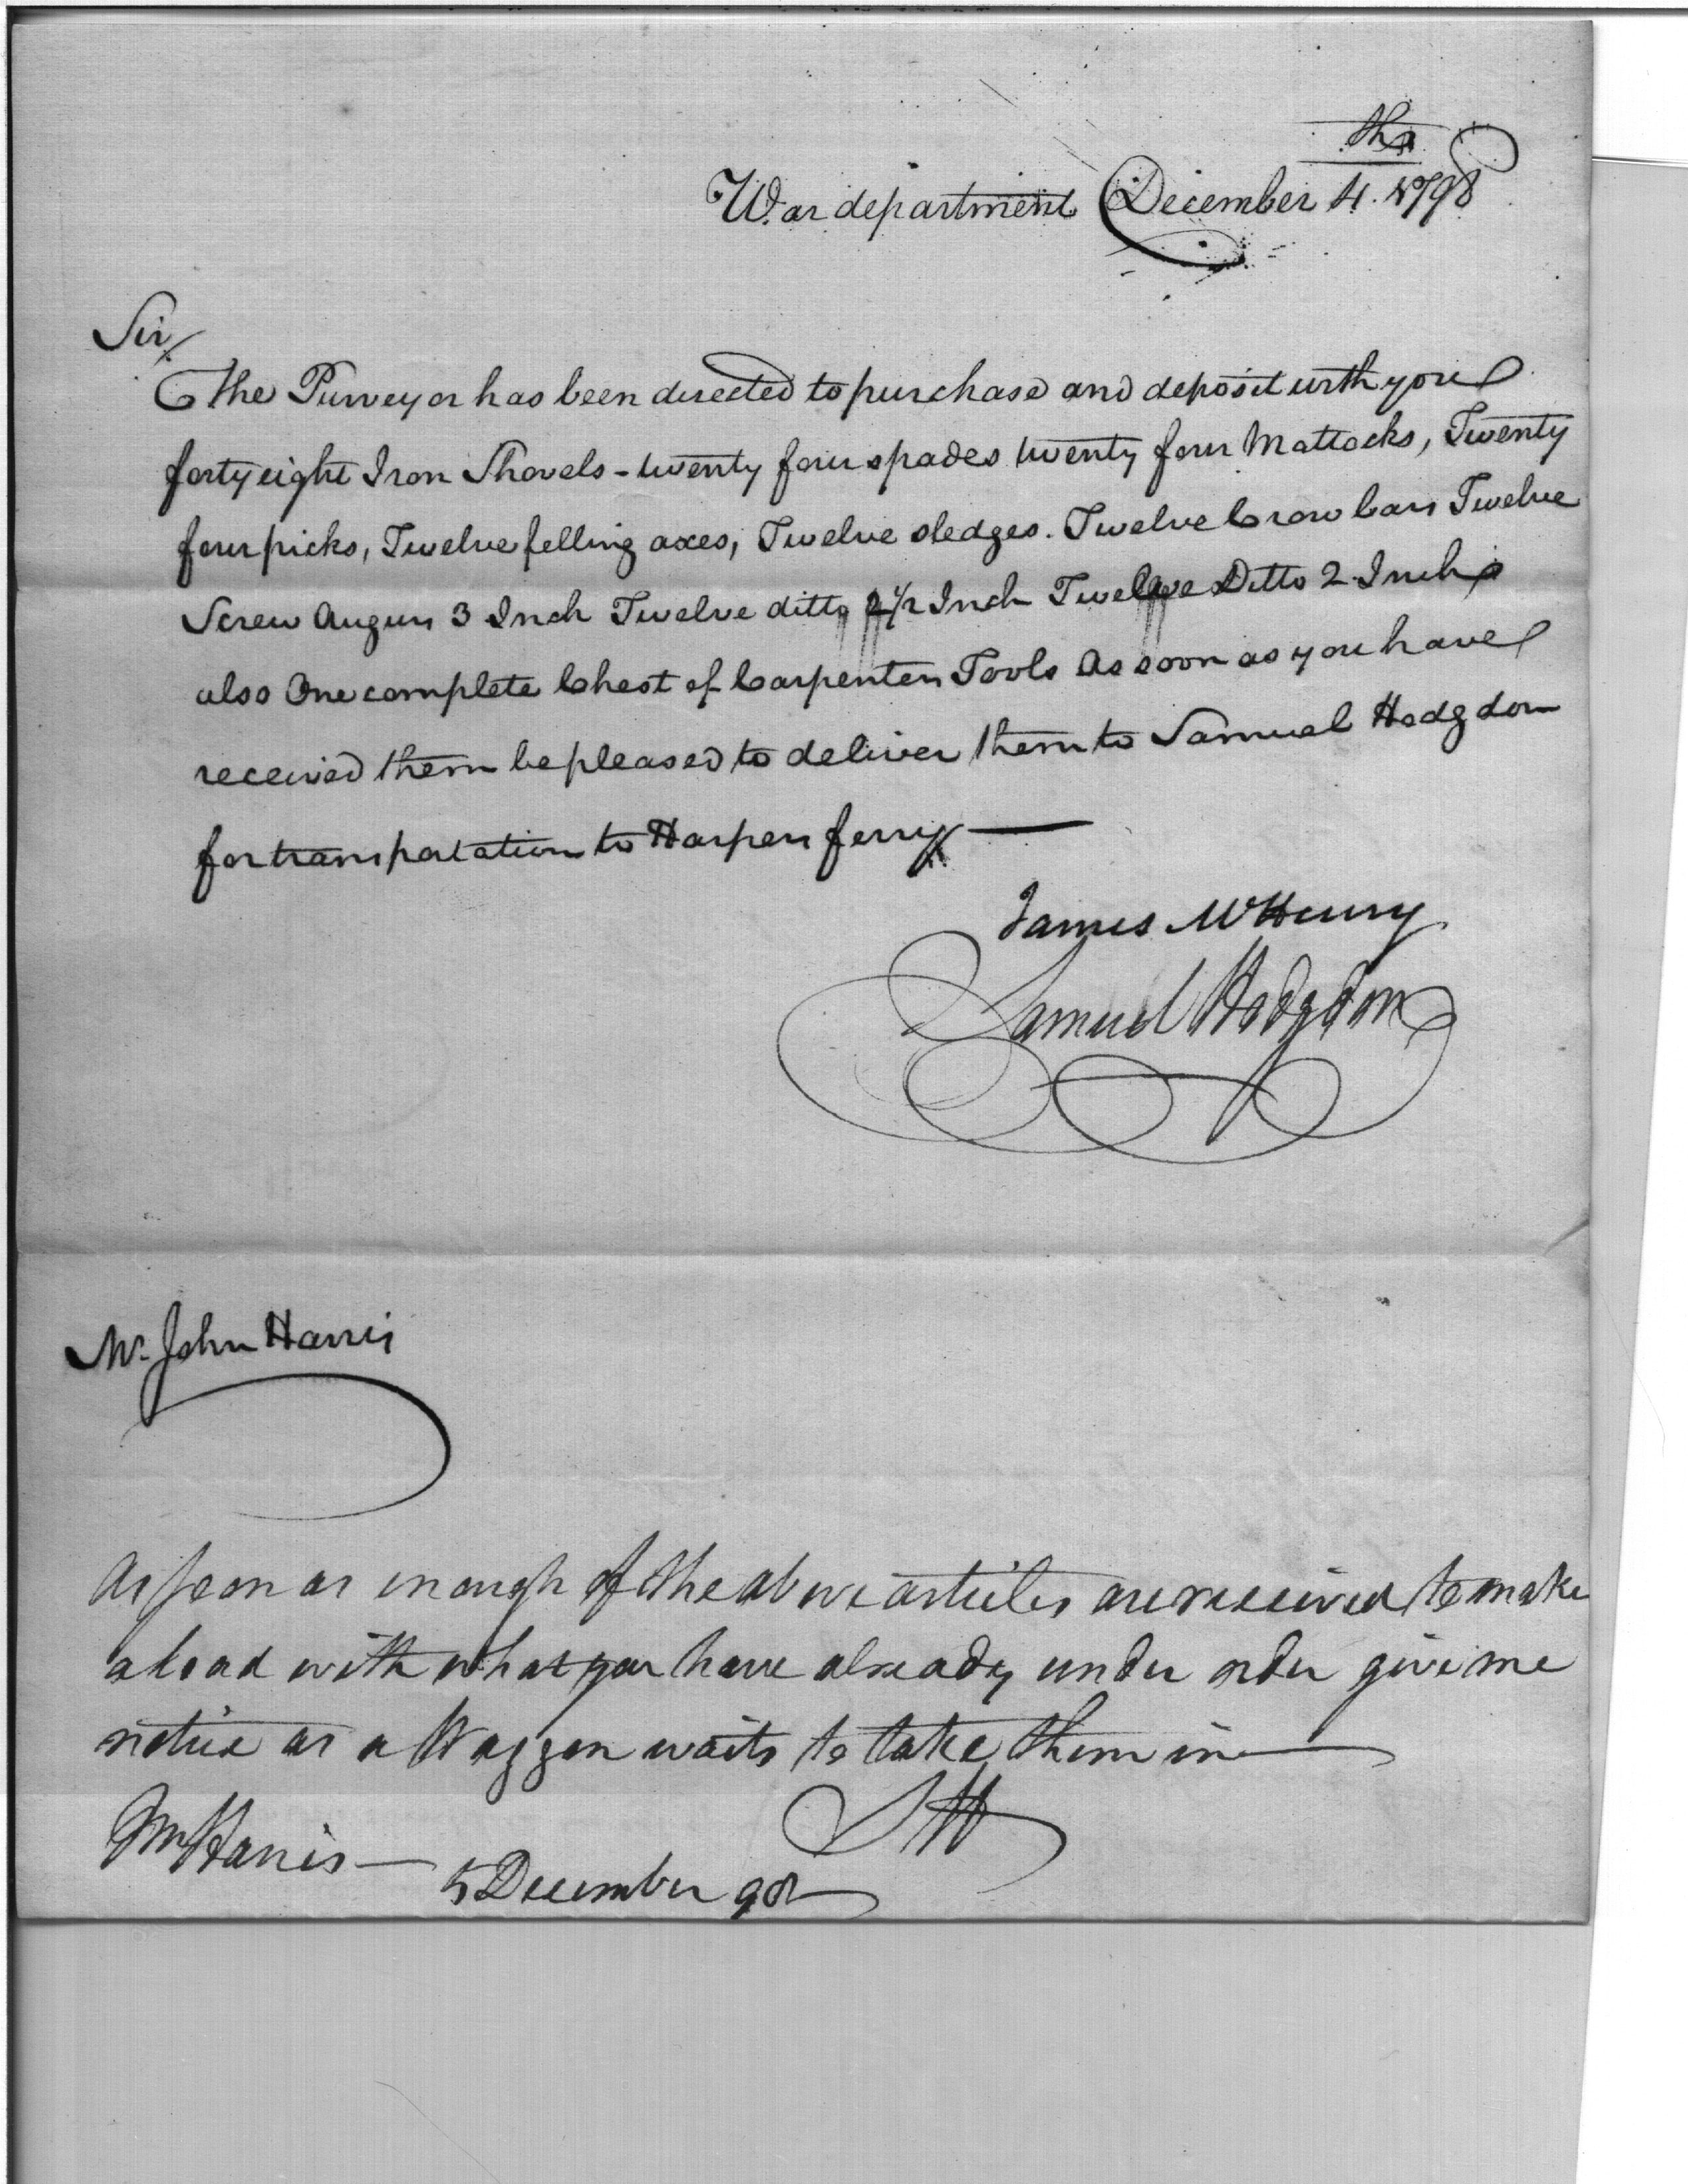 War department December 4.th 1798
Sir/
The Purveyor has been directed to purchase and deposit with you
forty eight Iron Shovels - twenty four spades twenty four Mattocks, Twenty
four picks, Twelve felling axes, Twelve sledges. Twelve Crow bars Twelve
Screw Augurs 3 Inch Twelve ditto 2 1/2 Inch Twelve Ditto 2 Inch
also One complete Chest of Carpenters Tools As soon as you have
received them be pleased to deliver them to Samuel Hodgdon
for transportation to Harpers ferry —
James McHenry
Samuel Hodgdon
Mr. John Harris
As soon as enough of the above articles are received to make
a load with what you have already under order give me
notice as a Waggon waits to take them in —
SH
Mr Harris —
5 December 98